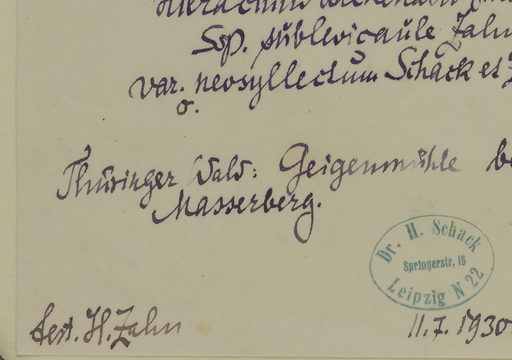 Hieracium
Ssp. sublevicaule Zahn
var. neosyllectum Schack et Z
σ.
Thüringer Wald: Geigenmühle be
Masserberg.
Dr. H. Schack
Springerstr. 16
Leipzig N 22
Test. H. Zahn
11.7.1930